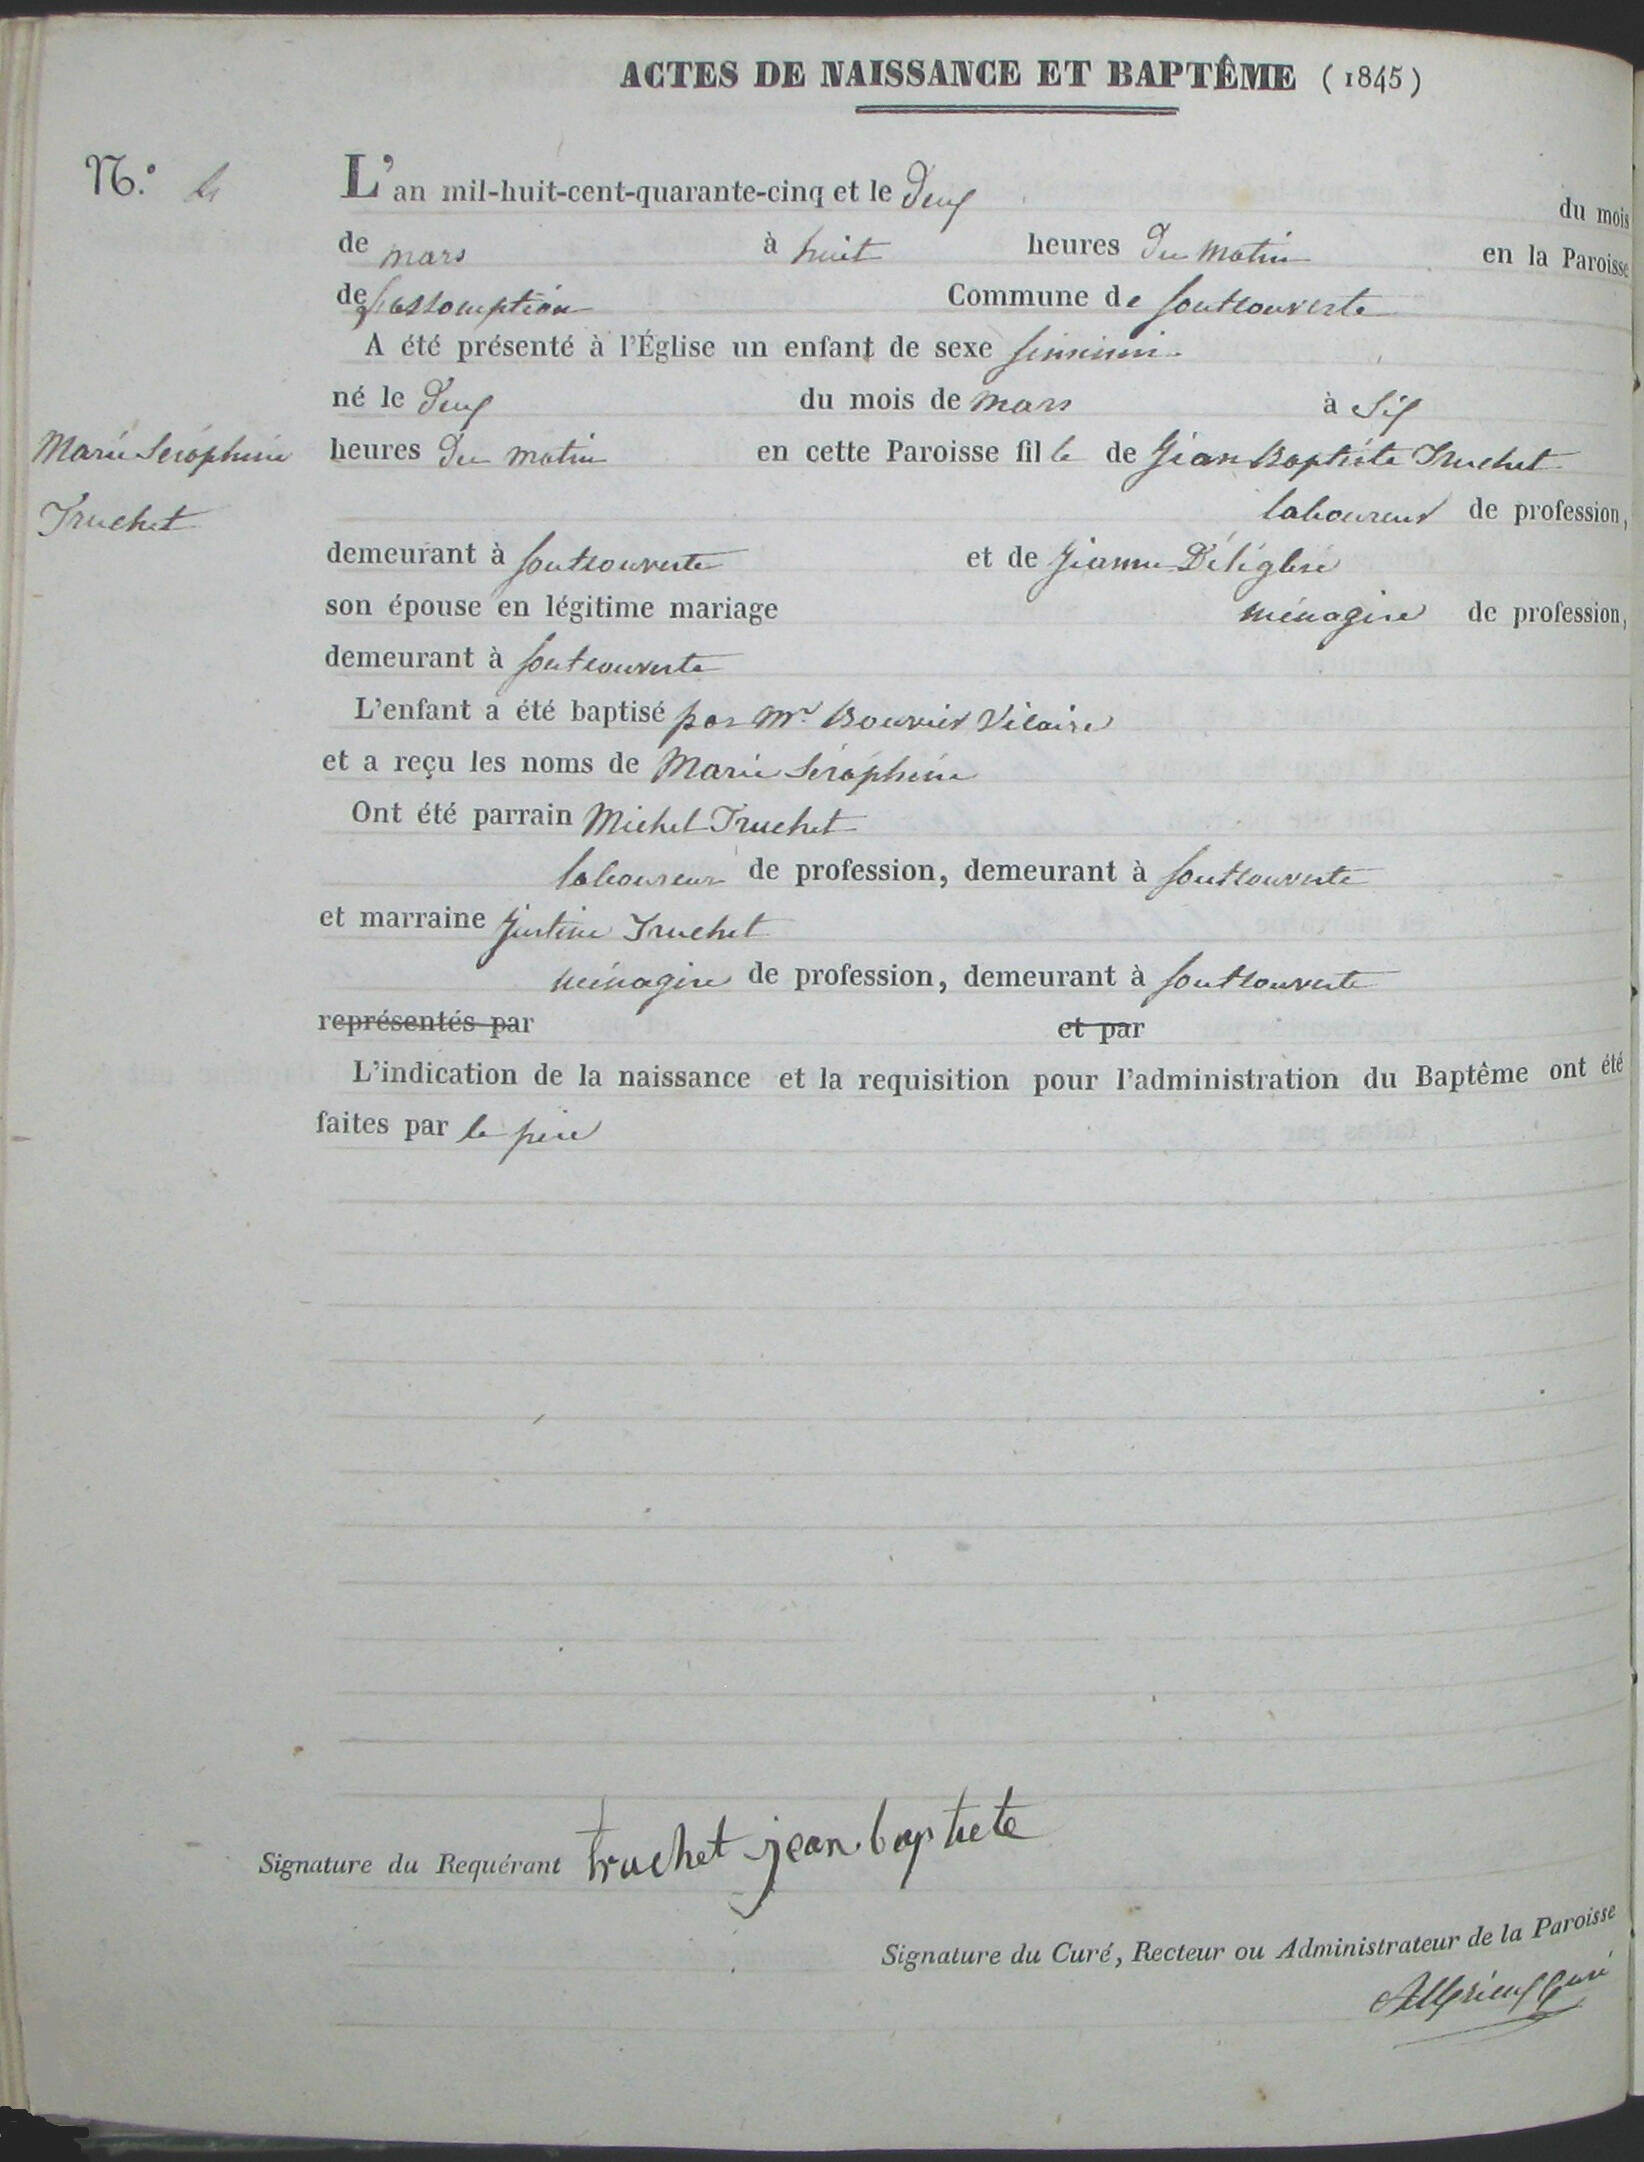 ACTES DE NAISSANCE ET BAPTÊME (1845)
N.° 4
L'an mil-huit-cent-quarante-cinq et le deux du mois
de mars à huit heures du matin en la Paroisse
de l'assomption Commune de fontcouverte
A été présenté à l'Église un enfant de sexe feminin
né le deux du mois de mars à six
Marie Séraphine
heures du matin en cette Paroisse fille de Jean Baptiste Truchet
Truchet
laboureur de profession,
demeurant à fontcouverte et de Jeanne Déléglise
son épouse en légitime mariage ménagère de profession,
demeurant à fontcouverte
L'enfant a été baptisé par Mr Bouvier Vicaire
et a reçu les noms de Marie Séraphine
Ont été parrain Michel Truchet
laboureur de profession, demeurant à fontcouverte
et marraine Justine Truchet
ménagère de profession, demeurant à fontcouverte
représentés par et par
L'indication de la naissance et la requisition pour l'administration du Baptême ont été
faites par le père
Signature du Requérant truchet jean baptiste
Signature du Curé, Recteur ou Administrateur de la Paroisse
Curé